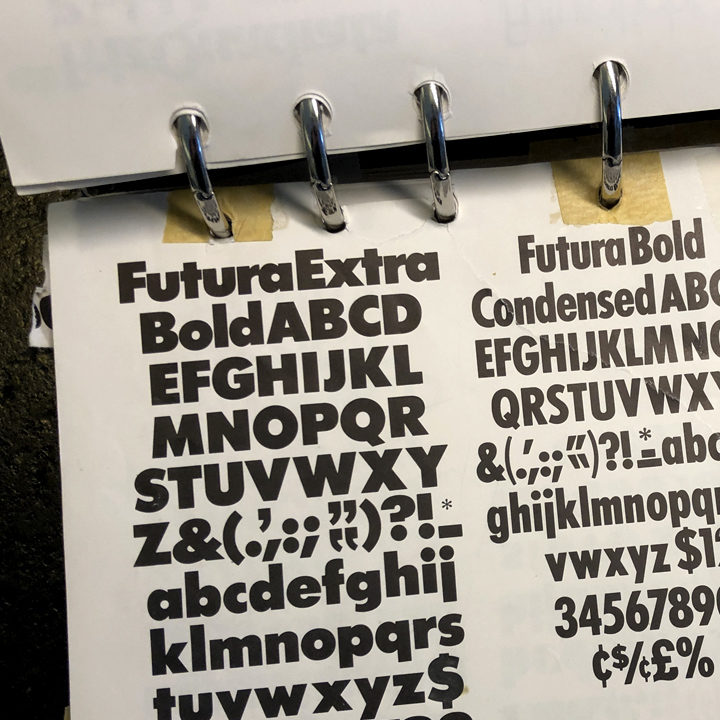 Futura Extra
Bold ABCD
EFGHIJKL
MNOPQR
STUVWXY
Z&(.,';:;"„)?!*-
abcdefghij
klmnopqrs
tuvwxyz$
Futura Bold
Condensed ABC
EFGHIJKLMNO
QRSTUVWXY
&(.,';:;"„)?!*-abc
ghijklmnopqr
vwxyz $12
34567890
¢$/¢£%